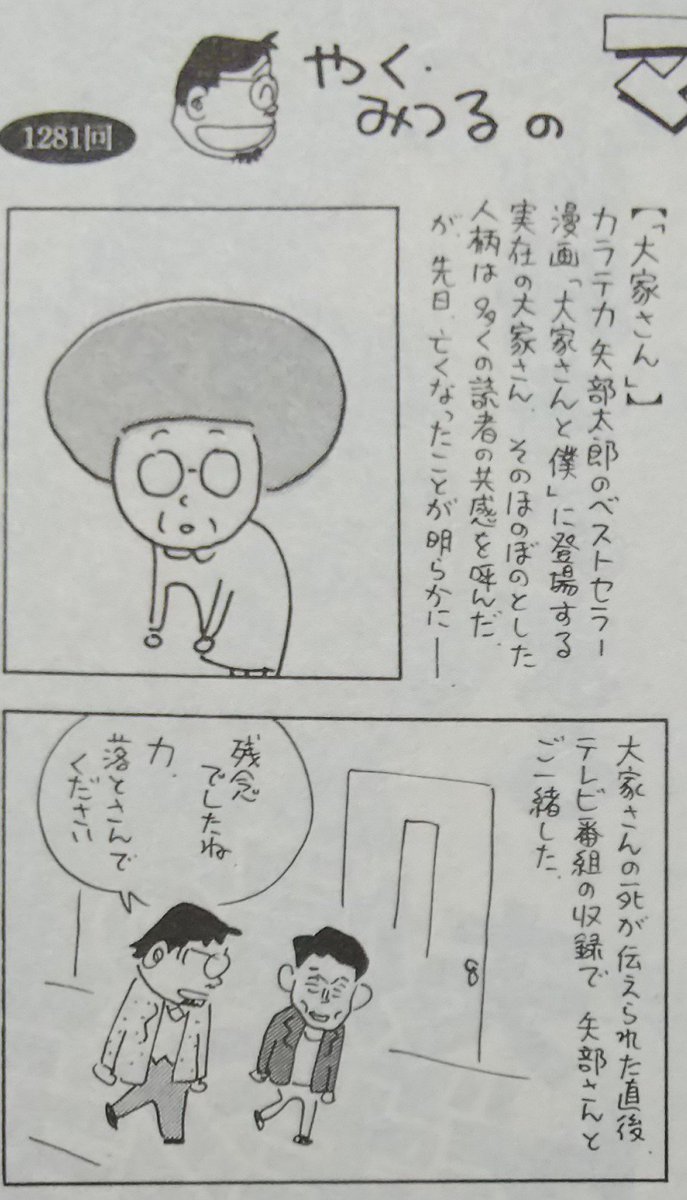 やく・
みつるの
マ
1281回
【「大家さん」】
カラテカ矢部太郎のベストセラー
漫画「大家さんと僕」に登場する
実在の大家さん、そのほのぼのとした
人柄は多くの読者の共感を呼んだ
が、先日、亡くなったことが明らかに―
大家さんの死が伝えられた直後、
テレビ番組の収録で矢部さんと
ご一緒した。
残念
でしたね
力、
落とさんで
ください